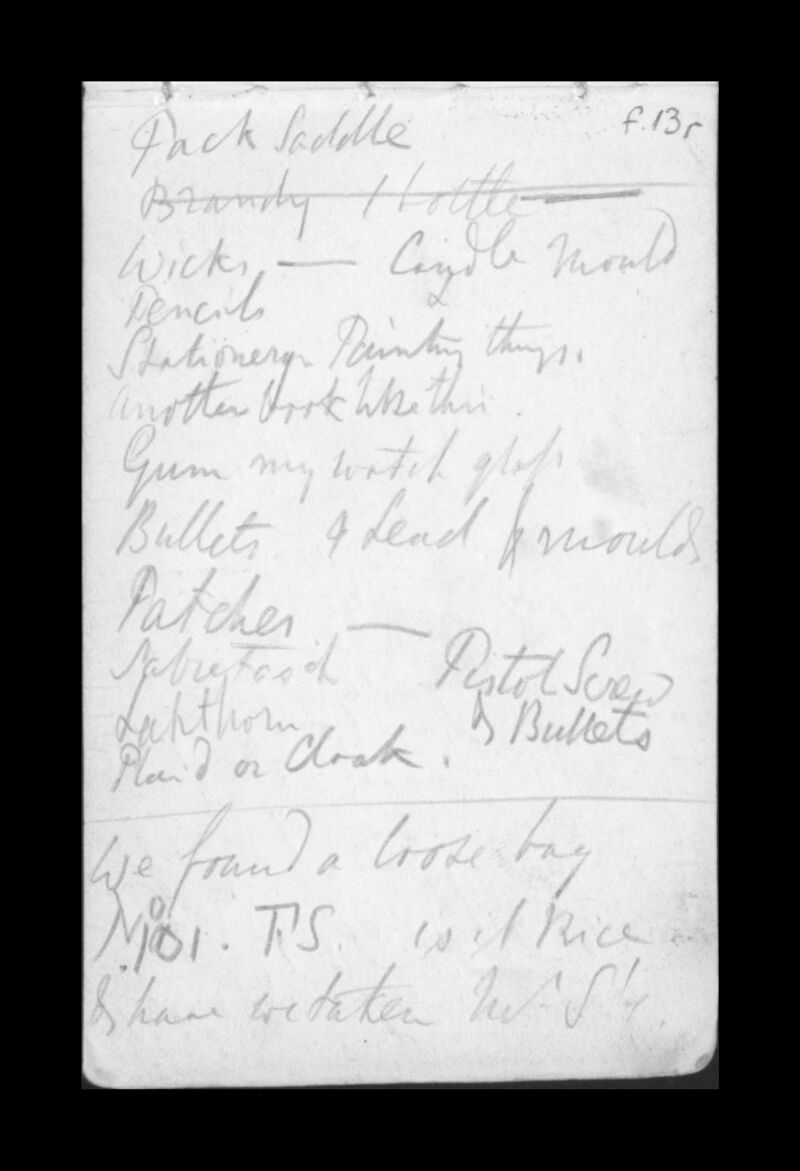 f.13r
Pack Saddle
Brandy 1 bottle
Wicks — Candle Mould
Pencils
Stationery Painting things.
Another book like this.
Gum my watch glass
Bullets & Lead & moulds
Patches —
Sabretasch Pistol Screw
& Bullets
Plaid or Cloak.
We found a loose bag
No 101. T.S. is it Rice
& have we taken Mr S's.